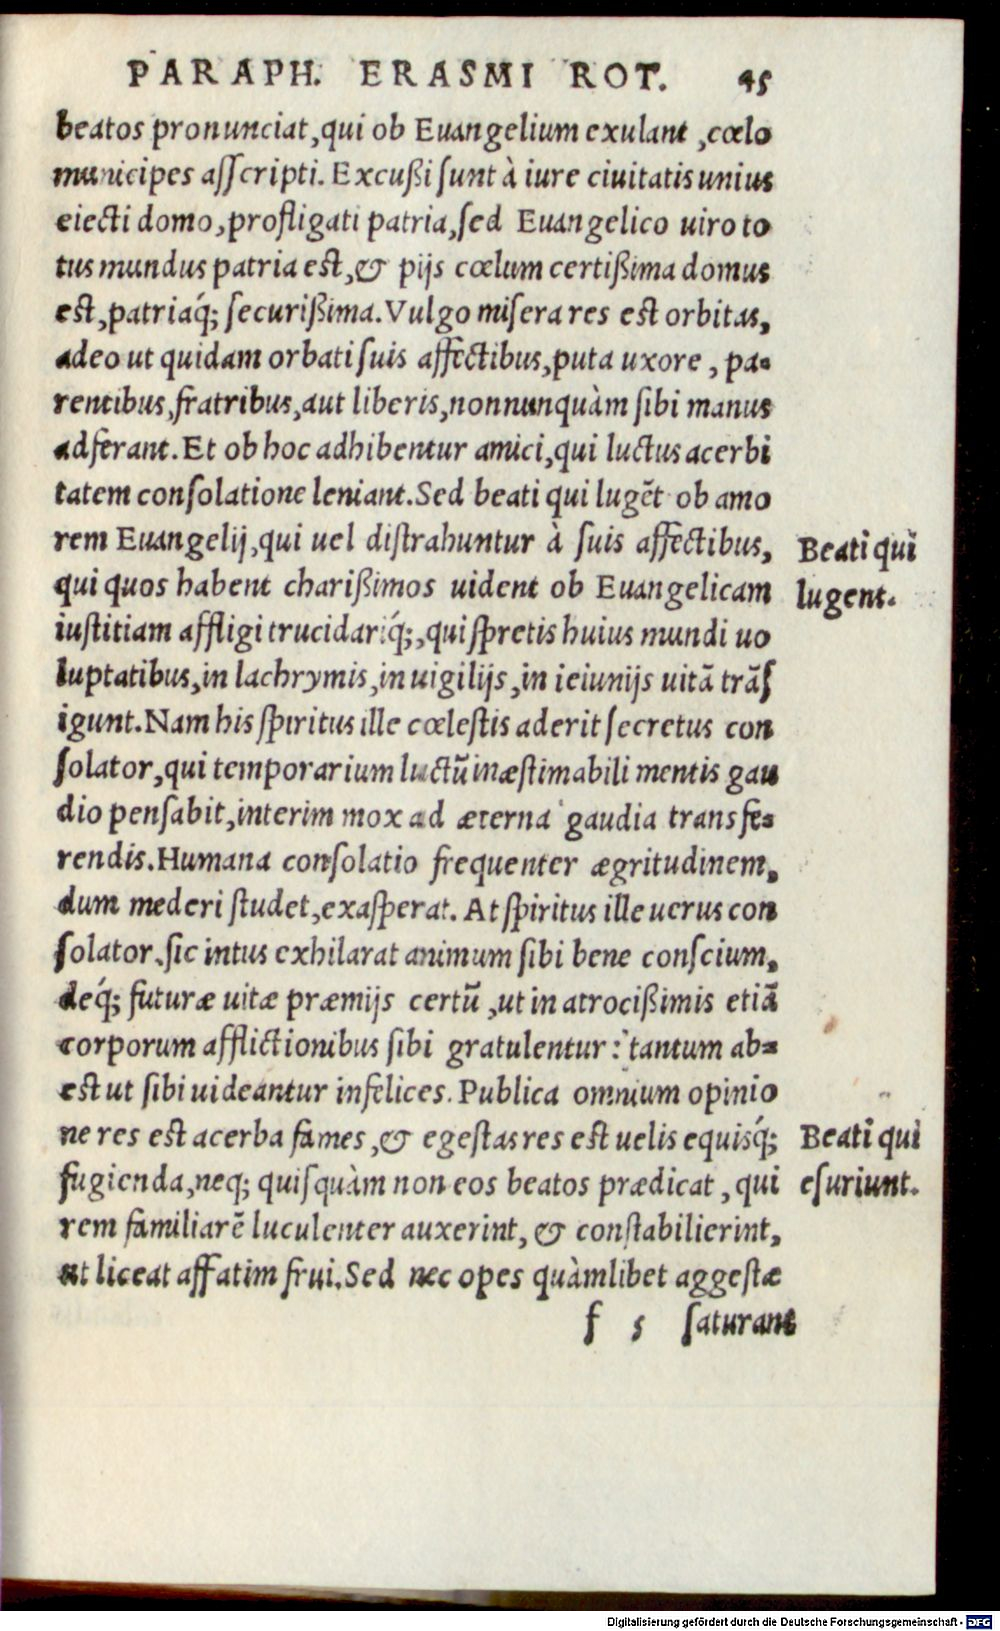 PARAPH. ERASMI ROT. 45
beatos pronunciat, qui ob Euangelium exulant, cœlo
municipes asscripti. Excußi sunt à iure ciuitatis unius
eiecti domo, profligati patria, sed Euangelico uiro to
tus mundus patria est, & pijs cœlum certißima domus
est, patriaq́; securißima. Vulgo misera res est orbitas,
adeo ut quidam orbati suis affectibus, puta uxore, pa-
rentibus, fratribus, aut liberis, nonnunquàm sibi manus
adferant. Et ob hoc adhibentur amici, qui luctus acerbi
tatem consolatione leniant. Sed beati qui lugēt ob amo
rem Euangelij, qui uel distrahuntur à suis affectibus,
Beati qui
lugent.
qui quos habent charißimos uident ob Euangelicam
iustitiam affligi trucidariq́;, qui spretis huius mundi uo
luptatibus, in lachrymis, in uigilijs, in ieiunijs uitā trās
igunt. Nam his spiritus ille cœlestis aderit secretus con
solator, qui temporarium luctū inæstimabili mentis gau
dio pensabit, interim mox ad æterna gaudia transfe-
rendis. Humana consolatio frequenter ægritudinem,
dum mederi studet, exasperat. At spiritus ille uerus con
solator, sic intus exhilarat animum sibi bene conscium,
deq́; futuræ uitæ præmijs certū, ut in atrocißimis etiā
corporum afflictionibus sibi gratulentur: tantum ab-
est ut sibi uideantur infelices. Publica omnium opinio
ne res est acerba fames, & egestas res est uelis equisq́;
Beati qui
esuriunt.
fugienda, neq; quisquàm non eos beatos prædicat, qui
rem familiarē luculenter auxerint, & constabilierint,
ut liceat affatim frui. Sed nec opes quàmlibet aggestæ
f 5 saturant
Digitalisierung gefördert durch die Deutsche Forschungsgemeinschaft - DFG